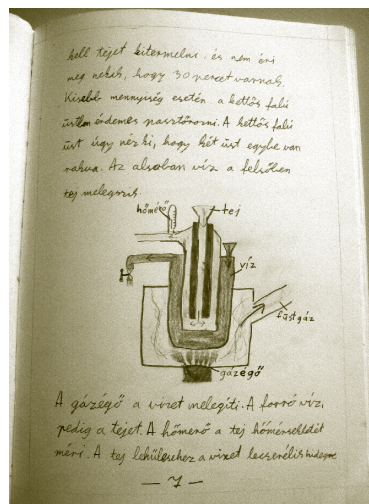 kell tejet kitermelni. és nem éri
meg nekik, hogy 30 percet várnak.
Kisebb mennyiség esetén a kettős falú
üstben érdemes pasztőrözni. A kettős falú
üst úgy néz ki, hogy két üst egybe van
rakva. Az alsóban víz a felsőben
tej melegszik.
hőmérő
tej
víz
füstgáz
gázégő
A gázégő a vizet melegíti. A forró víz,
pedig a tejet. A hőmérő a tej hőmérsékletét
méri. A tej lehűléséhez a vizet lecserélik hidegre
— 7 —